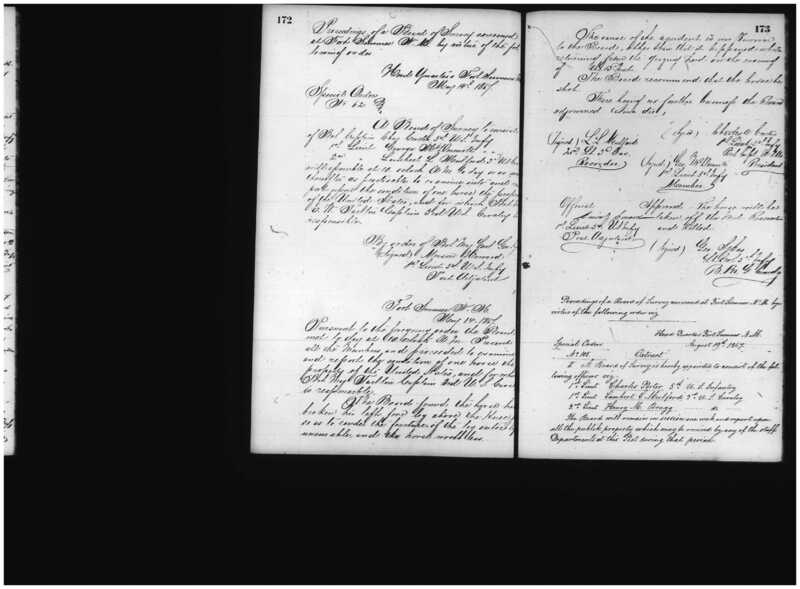 172
Proceedings of a Board of Survey convened
at Fort Sumner N. M. by virtue of the fol
lowing order
Head Quarters Fort Sumner
May 14th 1867
Special Order
No 62
A Board of Survey to consist
of Bvt Captain Chas 5th U.S. Infty
1st Lieut George McDermott " " "
2nd " Lambert L. Mulford 3rd U.S.
will assemble at 10 o'clock A.M. to day or as
as practicable to examine into and re
port upon the condition of one horse the property
of the United States, and for which
Captain 3rd U.S. Cavalry is
responsible.
By order of Bvt Brig Genl Geo
(Signed)
1st Lieut 5th U.S. Infty
Post Adjutant
Fort Sumner N. M.
May 14th 1867
Pursuant to the foregoing order the Board
met to day at 10 o'clock A.M. Present
all the Members, and proceeded to examine
and report the condition of one horse the
property of the United States, and for which
Captain 3rd U.S. Cav
is responsible.
The Board found the horse had
broken his left fore leg above the knee
so as to render the fracture of the leg
and the horse worthless.
173
The cause of the accident is not known
to the Board, other than that it happened while
returning from the grazing herd on the evening
of
The Board recommend that the horse be
shot.
There being no further business the Board
adjourned sine die,
(Signed) L. L. Mulford
2nd Lt 3rd Cav
Recorder
(Signed) Charles
1st Lieut 5th Infty
Bvt Capt U.S.A.
President
(Signed) Geo McDermott
1st Lieut 5th Infty
Member
Official
1st Lieut 5th U.S. Infty
Post Adjutant
Approved. The horse will be
taken off the Post
and killed.
(Signed) Geo Sykes
Lt Col 5th Infty
Proceedings of a Board of Survey convened at Fort Sumner N. M. by
virtue of the following order viz
Head Quarters Fort Sumner N. M.
August 19th 1867.
Special Orders
No 101. Extract
I A Board of Survey is hereby appointed to consist of the fol
lowing officers viz:
1st Lieut Charles Porter 5th U. S. Infantry
1st Lieut Lambert L. Mulford 3rd U. S. Cavalry
2nd Lieut Henry M. Bragg do
The Board will remain in session one week and report upon
all the public property which may be received by any of the staff
Departments at this Post during that period.